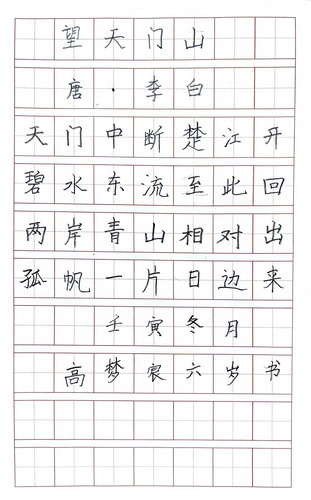 望天门山
唐·李白
天门中断楚江开
碧水东流至此回
两岸青山相对出
孤帆一片日边来
壬寅冬月
高梦宸六岁书